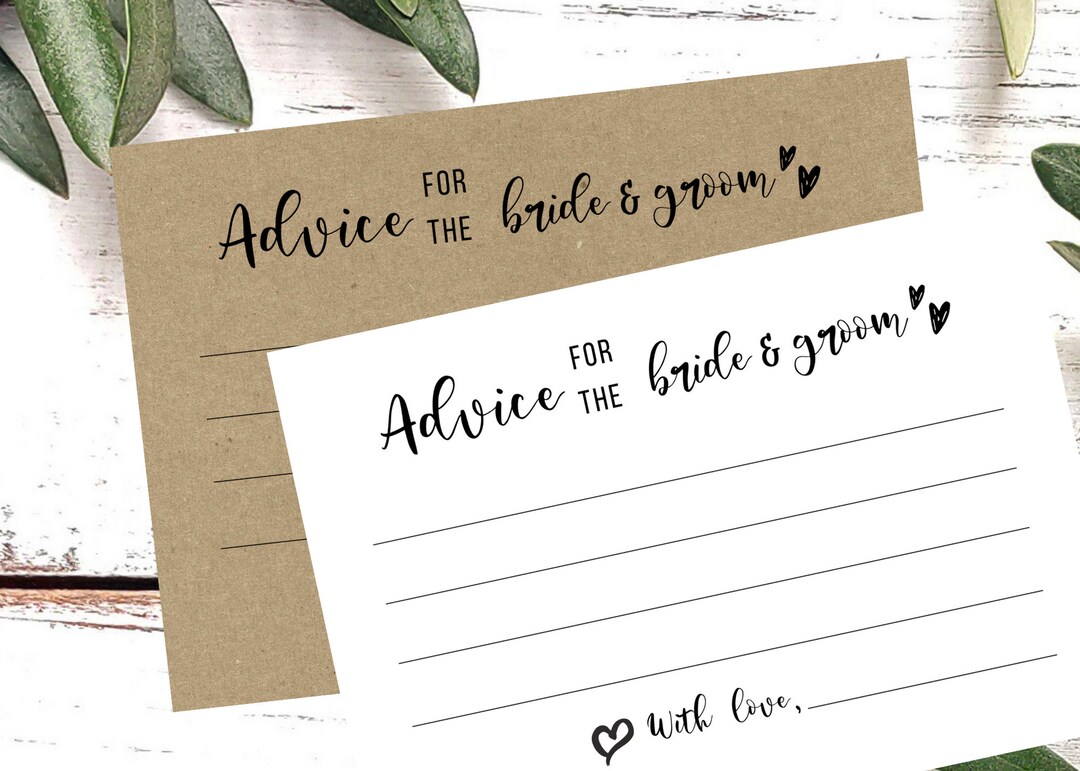 Advice FOR THE bride & groom
Advice FOR THE bride & groom
With love,